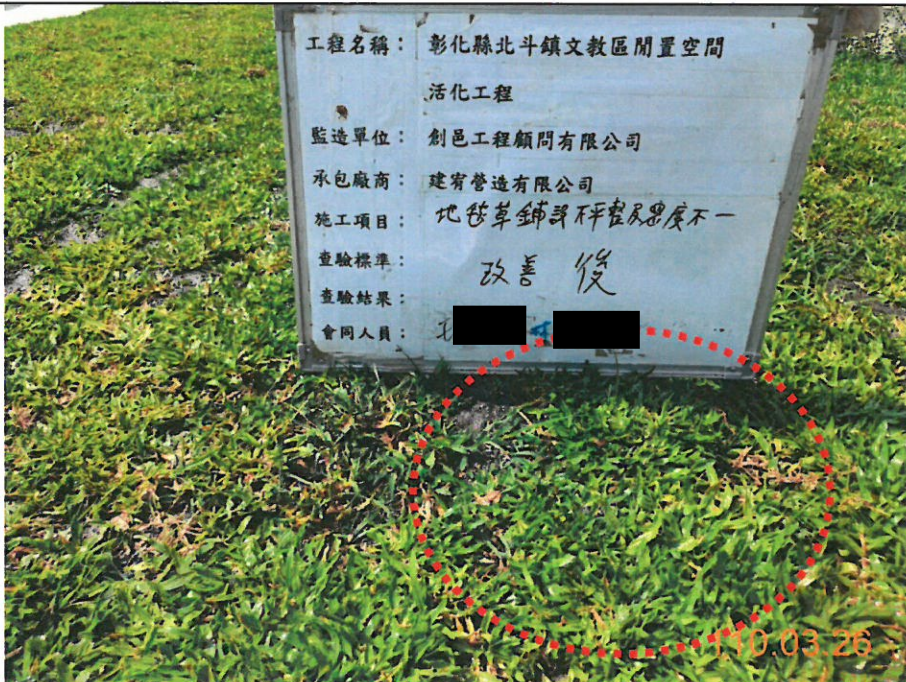 工程名稱： 彰化縣北斗鎮文教區閒置空間
活化工程
監造單位： 創邑工程顧問有限公司
承包廠商： 建宥營造有限公司
施工項目： 地毯草鋪設不平整及密度不一
查驗標準：
改善 後
查驗結果：
會同人員：
110.03.26